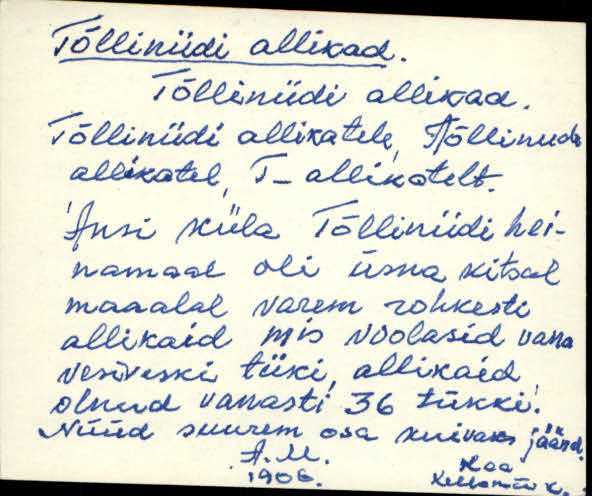 Tõlliniidi allikad.
Tõlliniidi allikad.
Tõlliniidi allikatele, Tõlliniidi
allikatel, T- allikatelt.
Ansi küla Tõlliniidi hei-
namaal oli üsna kitsal
maaalal varem rohkesti
allikaid mis voolasid vana
vesiveski tiiki, allikaid
olnud vanasti 36 tükki.
Nüüd suurem osa kuivaks jäänd.
A.M.
1906.